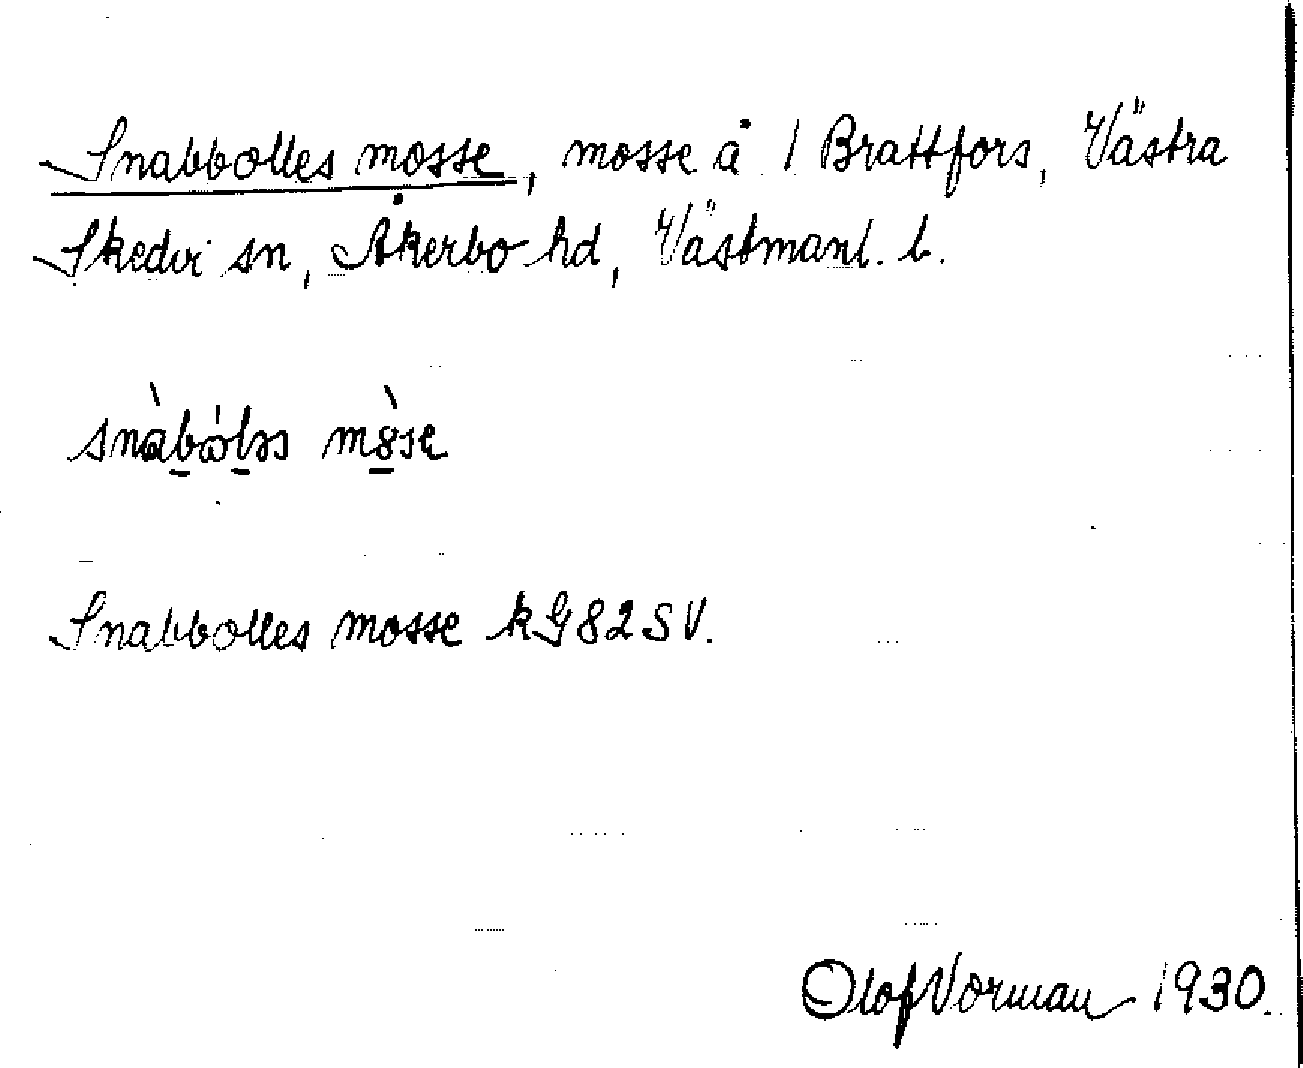 Snabbolles mosse, mosse å 1 Brattfors, Västra
Skedvi sn, Åkerbo hd, Västmanl. l.
snàbólss mòse
Snabbolles mosse kG82SV.
Olof Vorman 1930.